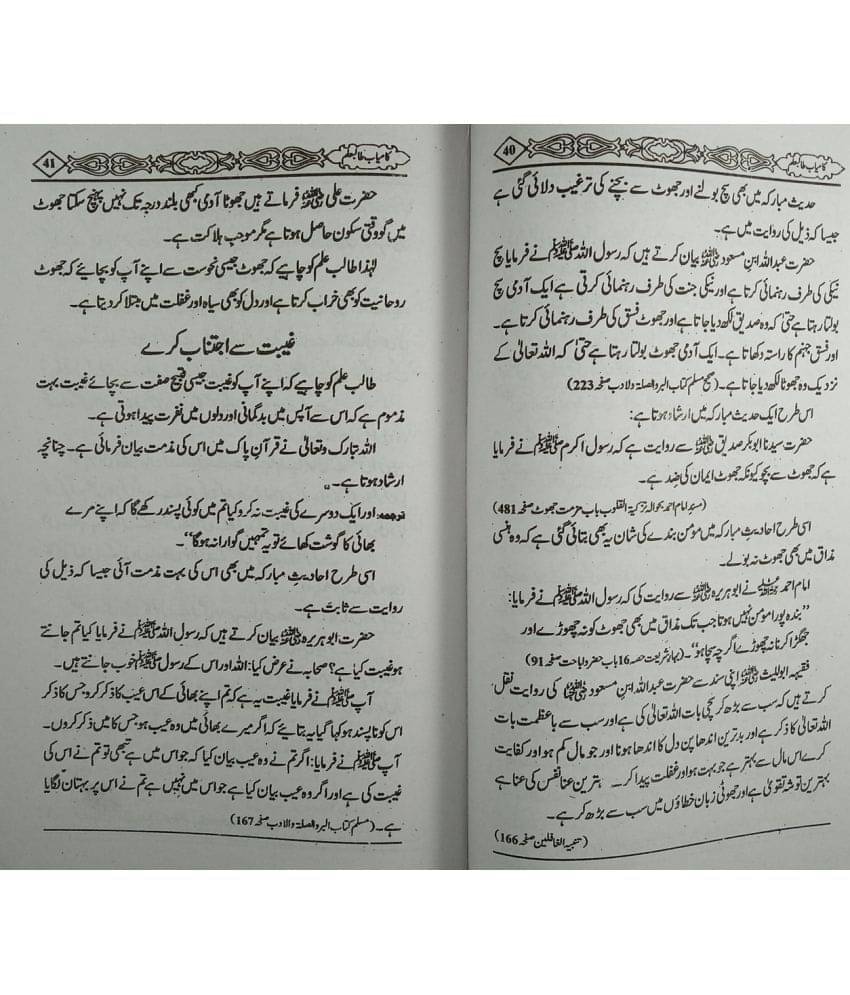 کامیاب طالبعلم
40
حدیث مبارکہ میں بھی سچ بولنے اور جھوٹ سے بچنے کی ترغیب دلائی گئی ہے
جیسا کہ ذیل کی روایت میں ہے۔
حضرت عبداللہ ابن مسعود رضی اللہ عنہ بیان کرتے ہیں کہ رسول اللہ ﷺ نے فرمایا سچ
نیکی کی طرف رہنمائی کرتا ہے اور نیکی جنت کی طرف رہنمائی کرتی ہے ایک آدمی سچ
بولتا رہتا ہے حتیٰ کہ وہ صدیق لکھ دیا جاتا ہے اور جھوٹ فسق کی طرف رہنمائی کرتا ہے۔
اور فسق جہنم کا راستہ دکھاتا ہے۔ ایک آدمی جھوٹ بولتا رہتا ہے حتیٰ کہ اللہ تعالیٰ کے
نزدیک وہ جھوٹا لکھ دیا جاتا ہے۔ (صحیح مسلم کتاب البر والصلۃ ولادب صفحہ 223)
اس طرح ایک حدیث مبارکہ میں ارشاد ہوتا ہے:
حضرت سیدنا ابوبکر صدیق رضی اللہ عنہ سے روایت ہے کہ رسول اکرم ﷺ نے فرمایا
ہے کہ جھوٹ سے بچو کیونکہ جھوٹ ایمان کی ضد ہے۔
(مسند امام احمد بحوالہ تزکیۃ القلوب باب مذمت جھوٹ صفحہ 481)
اسی طرح احادیث مبارکہ میں مؤمن بندے کی شان یہ بھی بتائی گئی ہے کہ وہ ہنسی
مذاق میں بھی جھوٹ نہ بولے۔
امام احمد رحمۃ اللہ علیہ نے ابوہریرہ رضی اللہ عنہ سے روایت کی کہ رسول اللہ ﷺ نے فرمایا:
”بندہ پورا مومن نہیں ہوتا جب تک مذاق میں بھی جھوٹ کو نہ چھوڑے اور
جھگڑا کرنا نہ چھوڑے اگرچہ سچا ہو“۔ (بہار شریعت حصہ 16 باب حضر ولباحت صفحہ 91)
فقیہہ ابواللیث رحمۃ اللہ علیہ اپنی سند سے حضرت عبداللہ ابن مسعود رضی اللہ عنہما کی روایت نقل
کرتے ہیں کہ سب سے بڑھ کر سچی بات اللہ تعالیٰ کی ہے اور سب سے باعظمت بات
اللہ تعالیٰ کا ذکر ہے اور بدترین اندھا پن دل کا اندھا ہونا اور جو مال کم ہو اور کفایت
کرے اس مال سے بہتر ہے جو بہت ہو اور غفلت پیدا کر۔ بہترین عنا نفس کی عنا ہے
بہترین توشہ تقویٰ ہے اور جھوٹی زبان خطاؤں میں سب سے بڑھ کر ہے۔
(تنبیہ الغافلین صفحہ 166)
کامیاب طالبعلم
41
حضرت علی رضی اللہ عنہ فرماتے ہیں جھوٹا آدمی کبھی بلند درجہ تک نہیں پہنچ سکتا جھوٹ
میں گو وقتی سکون حاصل ہوتا ہے مگر موجب ہلاکت ہے۔
لہٰذا طالب علم کو چاہیے کہ جھوٹ جیسی نحوست سے اپنے آپ کو بچائیے کہ جھوٹ
روحانیت کو بھی خراب کرتا ہے اور دل کو بھی سیاہ اور غفلت میں مبتلا کر دیتا ہے۔
غیبت سے اجتناب کرے
طالب علم کو چاہیے کہ اپنے آپ کو غیبت جیسی قبیح صفت سے بچائے غیبت بہت
مذموم ہے کہ اس سے آپس میں بدگمانی اور دلوں میں نفرت پیدا ہوتی ہے۔
اللہ تبارک وتعالیٰ نے قرآن پاک میں اس کی مذمت بیان فرمائی ہے۔ چنانچہ
ارشاد ہوتا ہے۔
ترجمہ: اور ایک دوسرے کی غیبت نہ کرو کیا تم میں کوئی پسند رکھے گا کہ اپنے مرے
بھائی کا گوشت کھائے تو یہ تمہیں گوارا نہ ہوگا“۔
اسی طرح احادیث مبارکہ میں بھی اس کی بہت مذمت آئی جیسا کہ ذیل کی
روایت سے ثابت ہے۔
حضرت ابوہریرہ رضی اللہ عنہ بیان کرتے ہیں کہ رسول اللہ ﷺ نے فرمایا کیا تم جانتے
ہو غیبت کیا ہے؟ صحابہ نے عرض کیا: اللہ اور اس کے رسول ﷺ خوب جانتے ہیں۔
آپ ﷺ نے فرمایا غیبت یہ ہے کہ تم اپنے بھائی کے اس عیب کا ذکر کرو جس کا ذکر
اس کو نا پسند ہو کہا گیا یہ بتائیے کہ اگر میرے بھائی میں وہ عیب ہو جس کا میں ذکر کروں۔
آپ ﷺ نے فرمایا: اگر تم نے وہ عیب بیان کیا کہ جو اس میں ہے تبھی تو تم نے اس کی
غیبت کی ہے اور اگر وہ عیب بیان کیا ہے جو اس میں نہیں ہے تم نے اس پر بہتان لگایا
ہے۔ (مسلم کتاب البر والصلۃ والادب صفحہ 167)